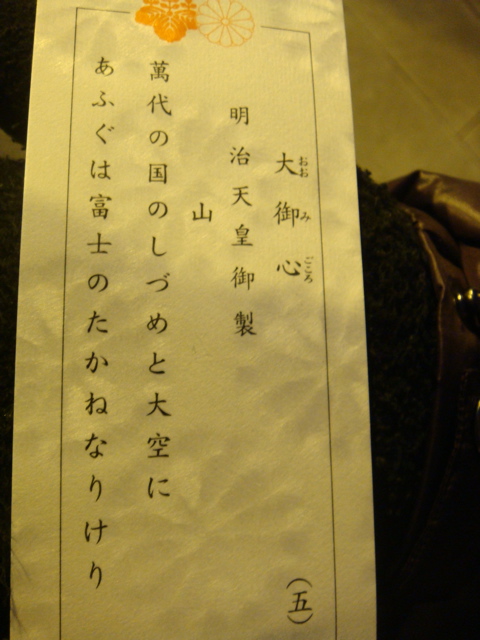 大御心
おおみごころ
明治天皇御製
山
萬代の国のしづめと大空に
あふぐは富士のたかねなりけり
（五）